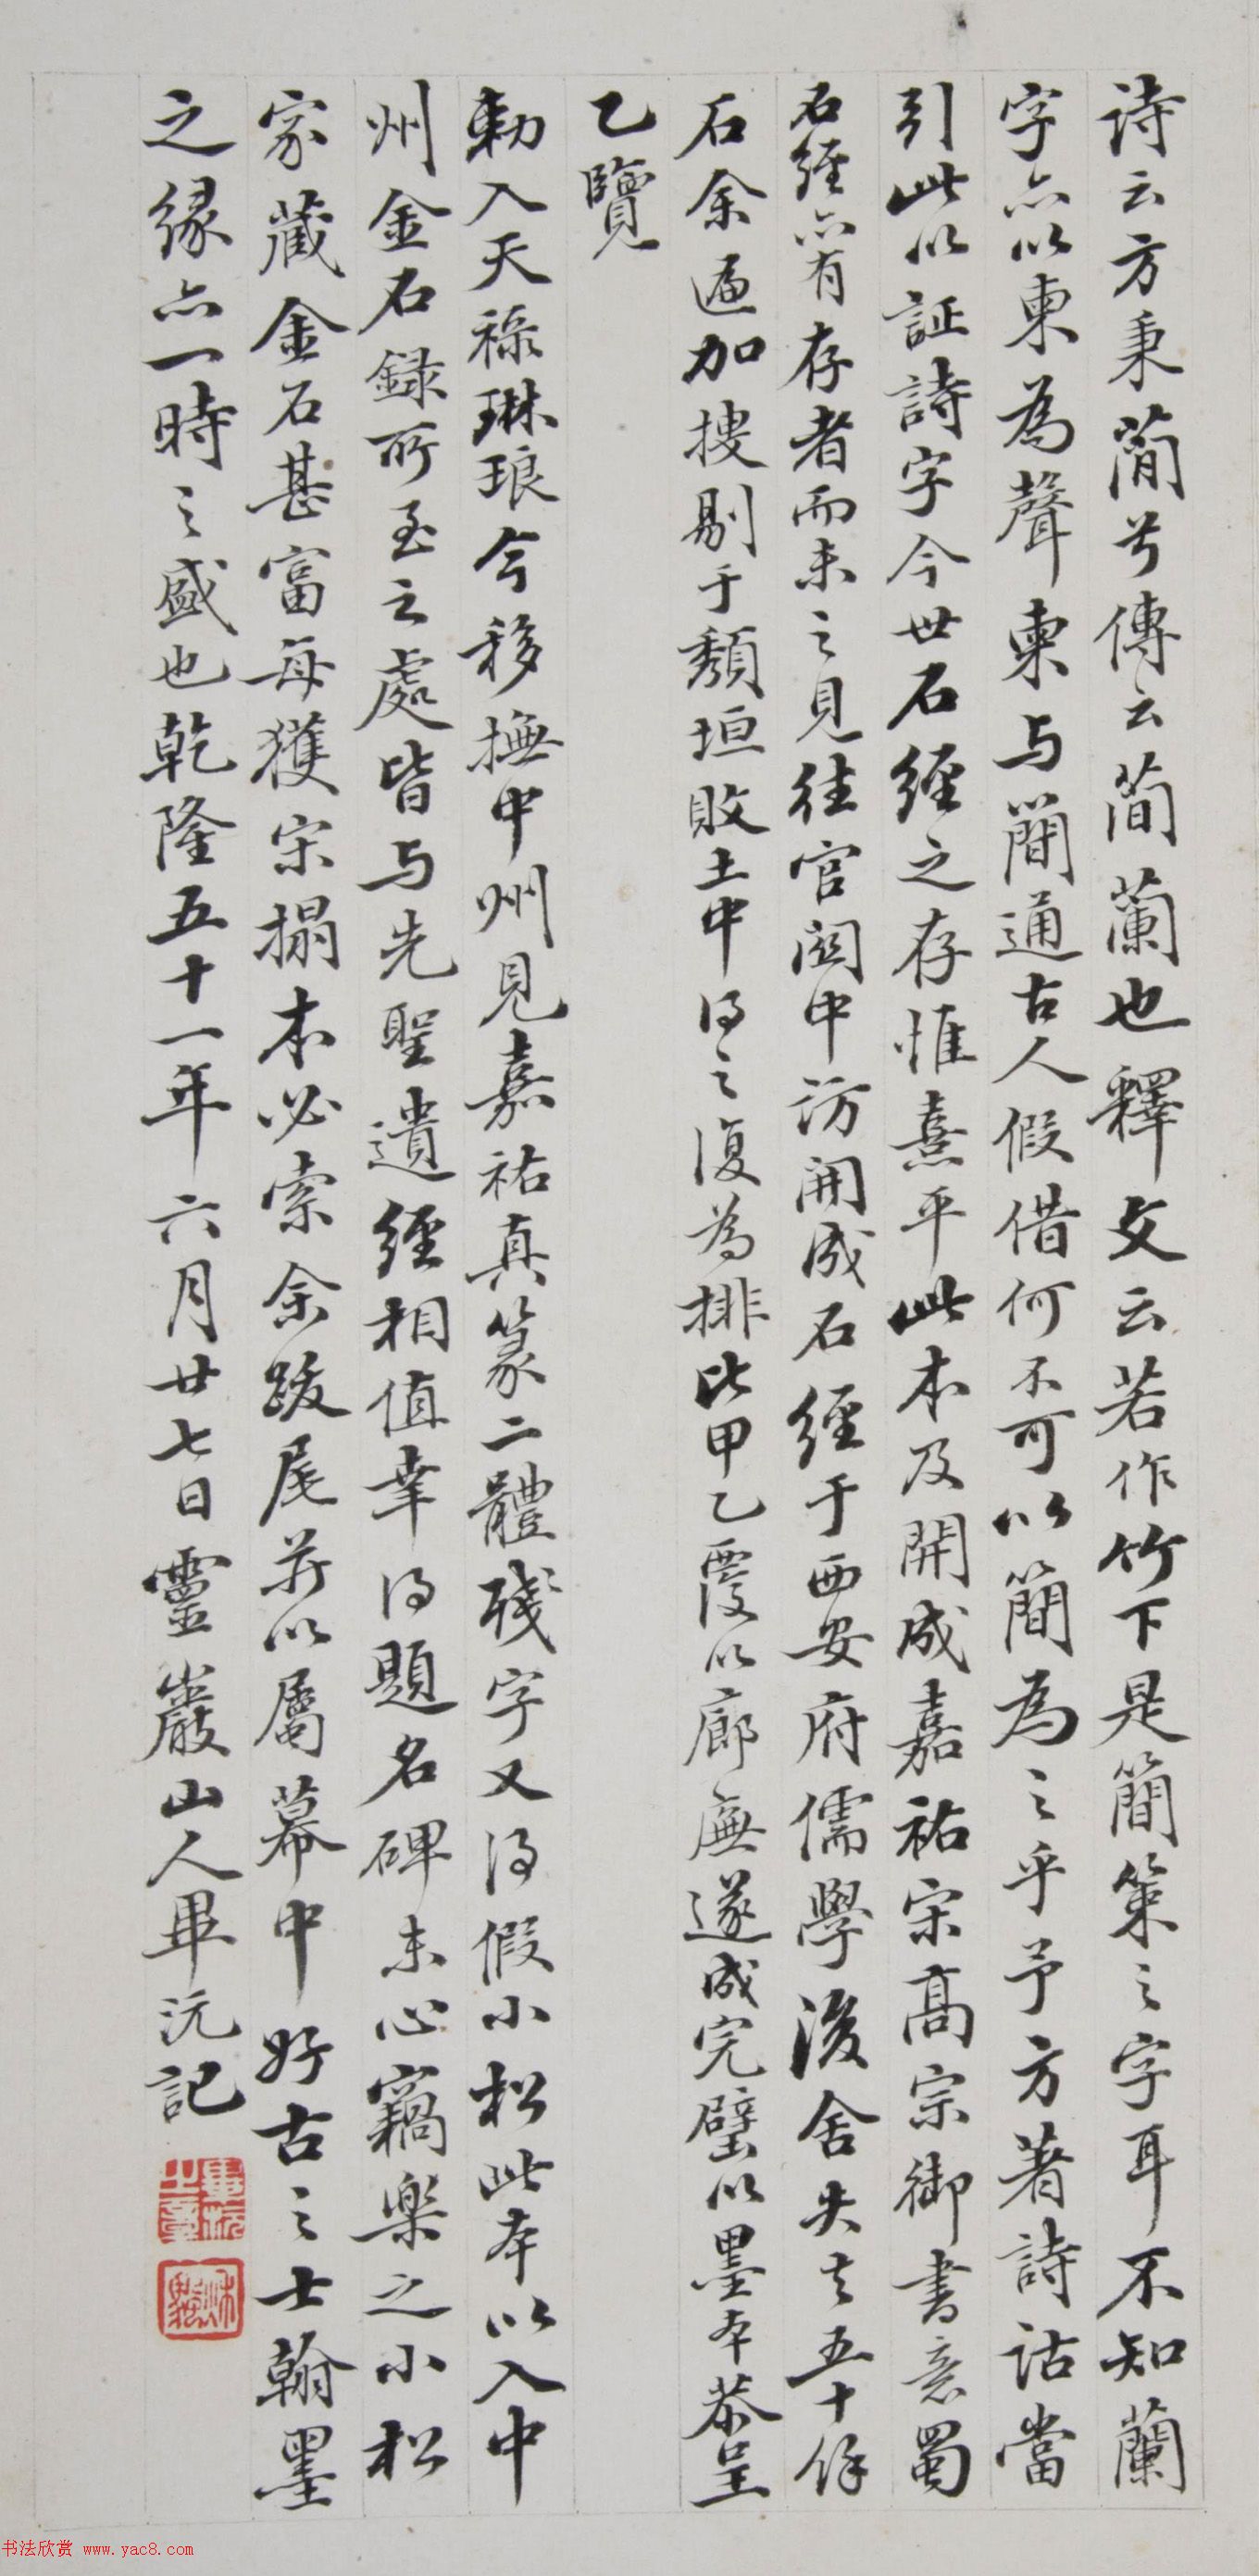 詩云方秉蕑兮傳云蕑蘭也釋文云若作竹下是簡策之字耳不知蘭
字亦以柬為聲柬与簡通古人假借何不可以簡為之乎予方著詩詁當
引此以証詩字今世石經之存惟熹平此本及開成嘉祐宋高宗御書意蜀
石經亦有存者而未之見往官關中訪開成石經于西安府儒學後舍失去五十餘
石余遍加搜剔于頹垣敗土中得之復為排比甲乙覆以廊廡遂成完璧以墨本恭呈
乙覽
勅入天祿琳琅今移撫中州見嘉祐真篆二體殘字又得假小松此本以入中
州金石録所至之處皆与先聖遺經相值幸得題名碑末心竊樂之小松
家藏金石甚富每獲宋搨本必索余跋尾并以屬幕中好古之士翰墨
之緣亦一時之盛也乾隆五十一年六月廿七日靈巖山人畢沅記
畢沅之章
秋帆
书法欣赏 www.yac8.com